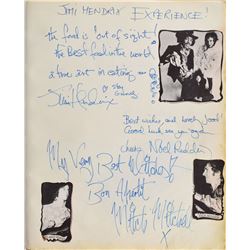 JIMI HENDRIX EXPERIENCE!
the food is "out of sight!"
the Best food in the world
a true art in eating
or stay Groovy
Jimi Hendrix
Best wishes, and lovely food!
Good luck, see you again
cheers Noel Redding
My Very Best Wishes
Bon
Mitch Mitchell
X